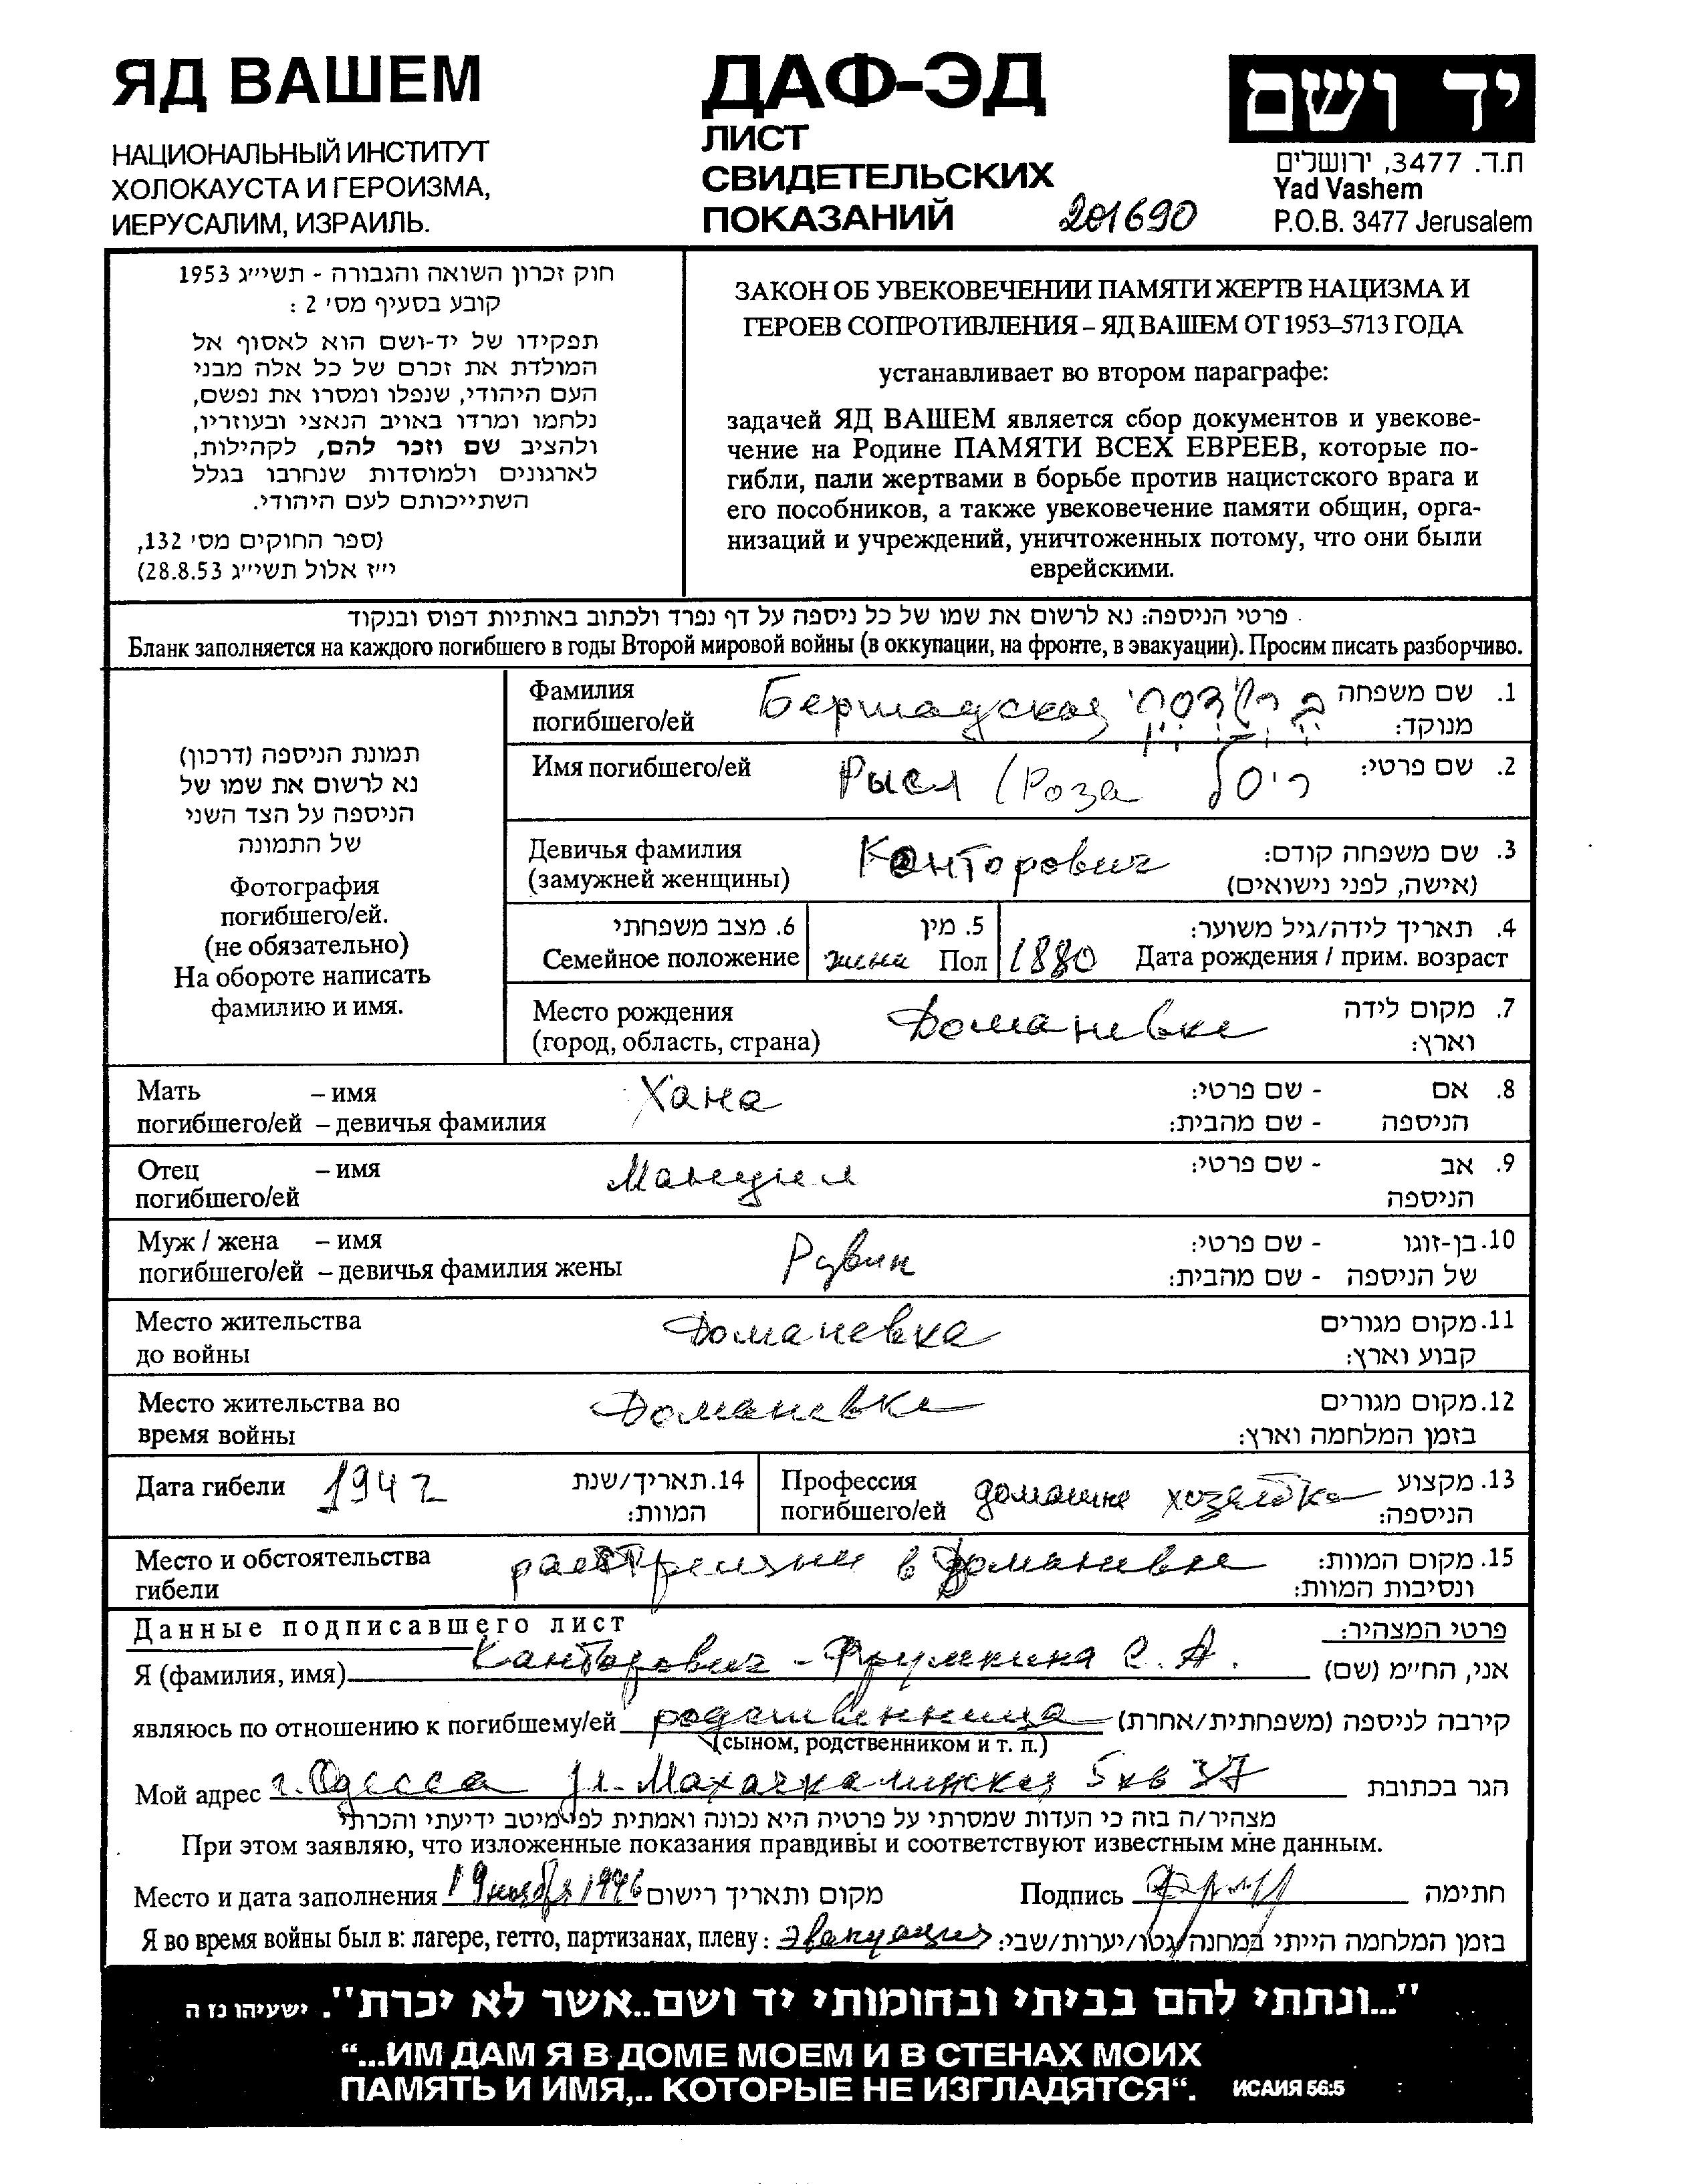 ЯД ВАШЕМ
НАЦИОНАЛЬНЫЙ ИНСТИТУТ
ХОЛОКАУСТА И ГЕРОИЗМА,
ИЕРУСАЛИМ, ИЗРАИЛЬ.
ДАФ-ЭД
ЛИСТ
СВИДЕТЕЛЬСКИХ
ПОКАЗАНИЙ 201690
יד ושם
ת.ד. 3477, ירושלים
Yad Vashem
P.O.B. 3477 Jerusalem
חוק זכרון השואה והגבורה - תשי״ג 1953
קובע בסעיף מס׳ 2 :
תפקידו של יד-ושם הוא לאסוף אל
המולדת את זכרם של כל אלה מבני
העם היהודי, שנפלו ומסרו את נפשם,
נלחמו ומרדו באויב הנאצי ובעוזריו,
ולהציב שם וזכר להם, לקהילות,
לארגונים ולמוסדות שנחרבו בגלל
השתייכותם לעם היהודי.
(ספר החוקים מס׳ 132,
י״ז אלול תשי״ג 28.8.53)
ЗАКОН ОБ УВЕКОВЕЧЕНИИ ПАМЯТИ ЖЕРТВ НАЦИЗМА И
ГЕРОЕВ СОПРОТИВЛЕНИЯ – ЯД ВАШЕМ ОТ 1953–5713 ГОДА
устанавливает во втором параграфе:
задачей ЯД ВАШЕМ является сбор документов и увекове-
чение на Родине ПАМЯТИ ВСЕХ ЕВРЕЕВ, которые по-
гибли, пали жертвами в борьбе против нацистского врага и
его пособников, а также увековечение памяти общин, орга-
низаций и учреждений, уничтоженных потому, что они были
еврейскими.
פרטי הניספה: נא לרשום את שמו של כל ניספה על דף נפרד ולכתוב באותיות דפוס ובנקוד
Бланк заполняется на каждого погибшего в годы Второй мировой войны (в оккупации, на фронте, в эвакуации). Просим писать разборчиво.
תמונת הניספה (דרכון)
נא לרשום את שמו של
הניספה על הצד השני
של התמונה
Фотография
погибшего/ей.
(не обязательно)
На обороте написать
фамилию и имя.
Фамилия Бершадская ברשדסקי 1. שם משפחה
погибшего/ей מנוקד:
Имя погибшего/ей Рысл (Роза ריסל 2. שם פרטי:
Девичья фамилия Канторович 3. שם משפחה קודם:
(замужней женщины) (אישה, לפני נישואים)
6. מצב משפחתי 5. מין 4. תאריך לידה/גיל משוער:
Семейное положение жена Пол 1880 Дата рождения / прим. возраст
Место рождения Доманевка 7. מקום לידה
(город, область, страна) וארץ:
Мать – имя Хана 8. אם - שם פרטי:
погибшего/ей – девичья фамилия הניספה - שם מהבית:
Отец – имя Мануил 9. אב - שם פרטי:
погибшего/ей הניספה
Муж / жена – имя Рувин 10. בן-זוגו - שם פרטי:
погибшего/ей – девичья фамилия жены של הניספה - שם מהבית:
Место жительства Доманевка 11. מקום מגורים
до войны קבוע וארץ:
Место жительства во Доманевка 12. מקום מגורים
время войны בזמן המלחמה וארץ:
Дата гибели 1942 14. תאריך/שנת
המוות:
Профессия домашня хозяйка 13. מקצוע
погибшего/ей הניספה:
Место и обстоятельства расстреляни в Доманевке 15. מקום המוות:
гибели ונסיבות המוות:
Данные подписавшего лист פרטי המצהיר:
Я (фамилия, имя) Канторович - Фрумкина С. А. אני, החי״מ (שם)
являюсь по отношению к погибшему/ей родственница קירבה לניספה (משפחתית/אחרת)
(сыном, родственником и т. п.)
Мой адрес г. Одесса ул. Махачкалинская 5 кв 37 הגר בכתובת
מצהיר/ה בזה כי העדות שמסרתי על פרטיה היא נכונה ואמתית לפי מיטב ידיעתי והכרתי
При этом заявляю, что изложенные показания правдивы и соответствуют известным мне данным.
Место и дата заполнения 19 ноября 1996 מקום ותאריך רישום Подпись חתימה
Я во время войны был в: лагере, гетто, партизанах, плену: эвакуация בזמן המלחמה הייתי במחנה/גטו/יערות/שבי:
"...ונתתי להם בביתי ובחומותי יד ושם..אשר לא יכרת". ישעיהו נז ה
“...ИМ ДАМ Я В ДОМЕ МОЕМ И В СТЕНАХ МОИХ
ПАМЯТЬ И ИМЯ,.. КОТОРЫЕ НЕ ИЗГЛАДЯТСЯ“. ИСАИЯ 56:5